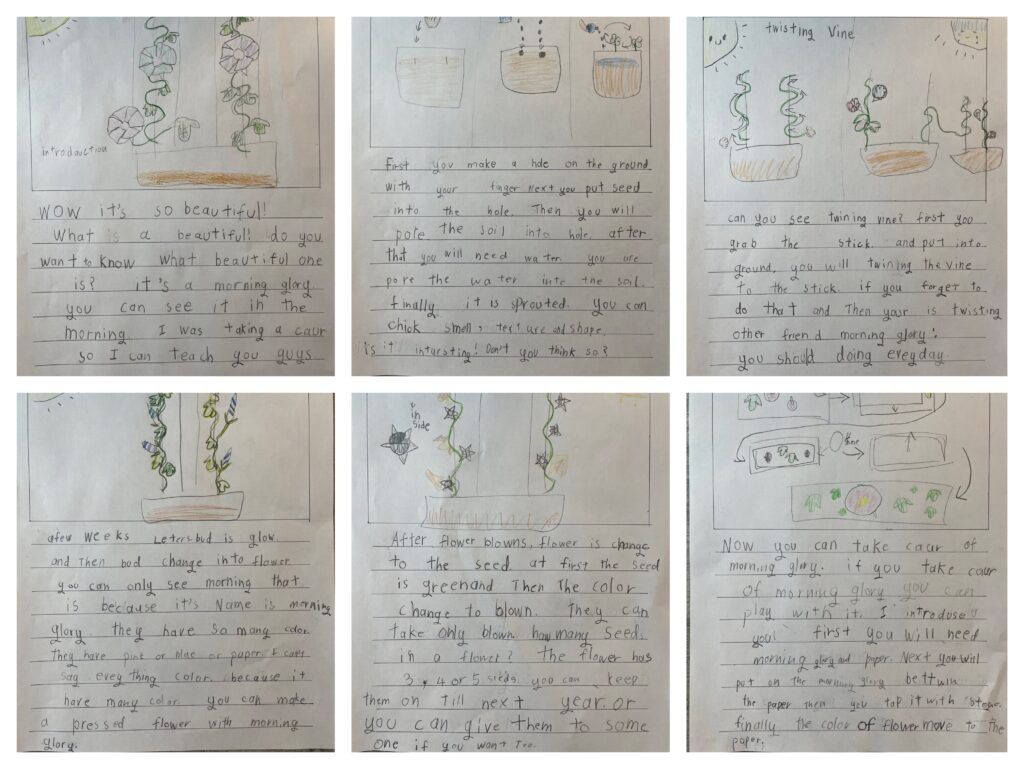 introduction
WOW it's so beautiful!
What is a beautiful! do you
want to know what beautiful one
is? it's a morning glory.
you can see it in the
morning. I was taking a caur
so I can teach you guys
First you make a hole on the ground
with your finger Next you put seed
into the hole. Then you will
pore the soil into hole. after
that you will need water. you are
pore the water into the soil.
finally it is sprouted. you can
chick smell, texture and shape.
is it intursting! Don't you think so?
twisting Vine
can you see twining vine? first you
grab the stick. and put into
ground, you will twining the vine
to the stick. if you forget to
do that and Then your is twisting
other friend morning glory.
you should doing eveyday.
afew weeks Leters bud is glow.
and Then bud change into flower
you can only see morning that
is because it's Name is morning
glory. they have so many color.
They have pink or blue or paper. I can't
say evey thing color. because it
have many color. you can make
a pressed flower with morning
glory.
in
side
After flower blowns, flower is change
to the seed. at first the seed
is greenand Then The color
change to blown. they can
take only blown. how many seeds
in a flower? The flower has
3, 4 or 5 sieds. you can keep
them on till next year. or
you can give them to some
one if you want Too.
Now you can take caur of
morning glory. if you take caur
of morning glory you can
play with it. I introduse
you! first you will need
morning glory and paper. Next you will
put on the morning glory bettwin
the paper then you tap it with stone.
finally the color of flower move to the
paper.